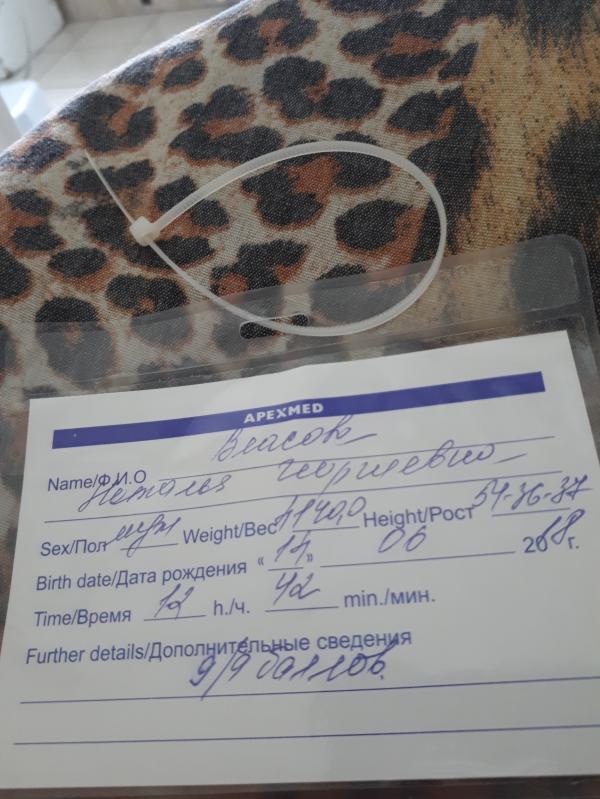 APEXMED
Name/Ф.И.О Власова
Наталья Георгиевна
Sex/Пол муж Weight/Вес Height/Рост 54-36-37
Birth date/Дата рождения « » 06 2018 г.
Time/Время 12 h./ч. 42 min./мин.
Further details/Дополнительные сведения
9/9 баллов.